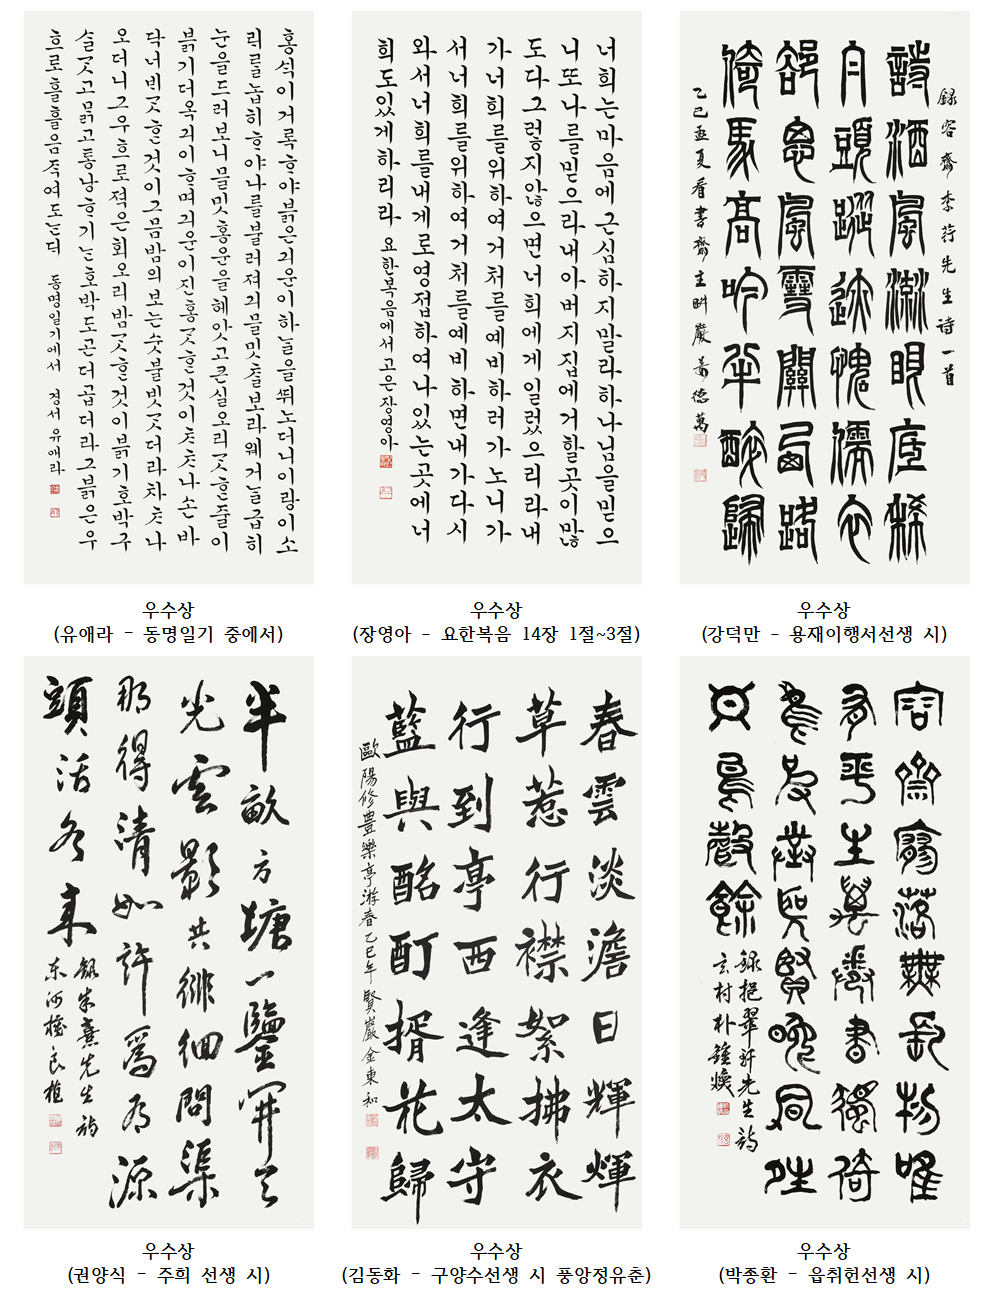 홍색이거록ᄒᆞ야븕은긔운이하ᄂᆞᆯ을뛰노더니이랑이소
ᄅᆡᄅᆞᆯ놉히ᄒᆞ야나를불러져긔믈밋ᄎᆞᆯ보라웨거ᄂᆞᆯ급히
눈을드러보니믈밋홍운을헤앗고큰실오리ᄀᆞᆺᄒᆞᆫ줄이
븕기더옥긔이ᄒᆞ며긔운이진홍ᄀᆞᆺᄒᆞᆫ것이ᄎᆞᄎᆞ나손바
닥너비ᄀᆞᆺᄒᆞᆫ것이그믐밤의보는숫불빗ᄀᆞᆺ더라ᄎᆞᄎᆞ나
오더니그우흐로젹은회오리밤ᄀᆞᆺᄒᆞᆫ것이븕기호박구
슬ᄀᆞᆺ고ᄆᆞᆰ고통낭ᄒᆞ기ᄂᆞᆫ호박도곤더곱더라그븕은우
흐로흘흘움즉여도ᄂᆞᆫᄃᆡ 동명일기에서 경서 유애라
우수상
(유애라 - 동명일기 중에서)
너희는마음에근심하지말라하나님을믿으
니또나를믿으라내아버지집에거할곳이많
도다그렇지않으면너희에게일렀으리라내
가너희를위하여거처를예비하러가노니가
서너희를위하여거처를예비하면내가다시
와서너희를내게로영접하여나있는곳에너
희도있게하리라 요한복음에서 고은장영아
우수상
(장영아 - 요한복음 14장 1절~3절)
錄容齋李荇先生詩一首
詩酒風流眼底稀
白頭蹤跡愧儒衣
却思風雪關西路
倚馬高吟半醉歸
乙巳孟夏看書齋主畊巖姜德萬
우수상
(강덕만 - 용재이행서선생 시)
半畝方塘一鑒開天
光雲影共徘徊問渠
那得清如許爲有源
頭活水來
錄朱熹先生詩
东河權良植
우수상
(권양식 - 주희 선생 시)
春雲淡澹日輝輝
草惹行襟絮拂衣
行到亭西逢太守
藍與酩酊插花歸
歐陽修豊樂亭游春乙巳年賢巖金東和
우수상
(김동화 - 구양수선생 시 풍앙정유춘)
容齋寥落無長物唯
有平生萬卷書獨倚
錄挹翠軒先生詩
玄村朴鍾煥
우수상
(박종환 - 읍취헌선생 시)